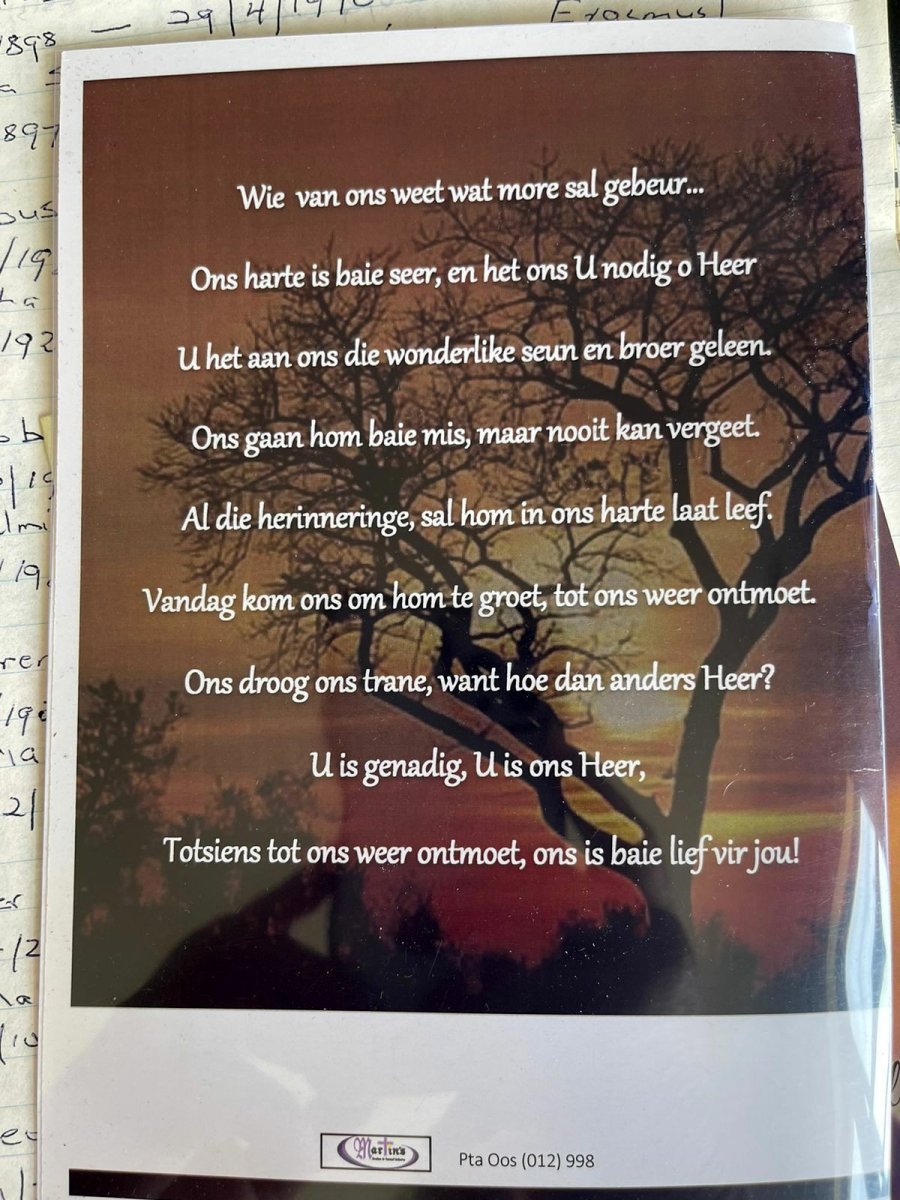 1898 — 29/4/19
Erasmus
897
ous
/19
ha
192
/19
lmi
/19
rer
/19
la
2/
er
/2
la
/10
Wie van ons weet wat more sal gebeur...
Ons harte is baie seer, en het ons U nodig o Heer
U het aan ons die wonderlike seun en broer geleen.
Ons gaan hom baie mis, maar nooit kan vergeet.
Al die herinneringe, sal hom in ons harte laat leef.
Vandag kom ons om hom te groet, tot ons weer ontmoet.
Ons droog ons trane, want hoe dan anders Heer?
U is genadig, U is ons Heer,
Totsiens tot ons weer ontmoet, ons is baie lief vir jou!
Martin's
Pta Oos (012) 998